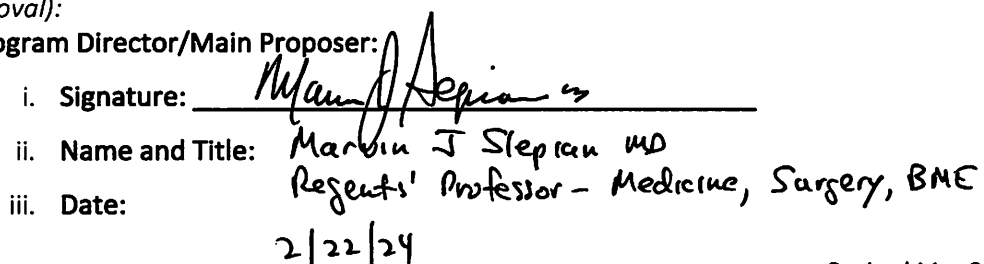 oval):
ogram Director/Main Proposer:
i. Signature: Marvin J Slepian MD
ii. Name and Title: Marvin J Slepian MD
Regents' Professor - Medicine, Surgery, BME
iii. Date:
2/22/24